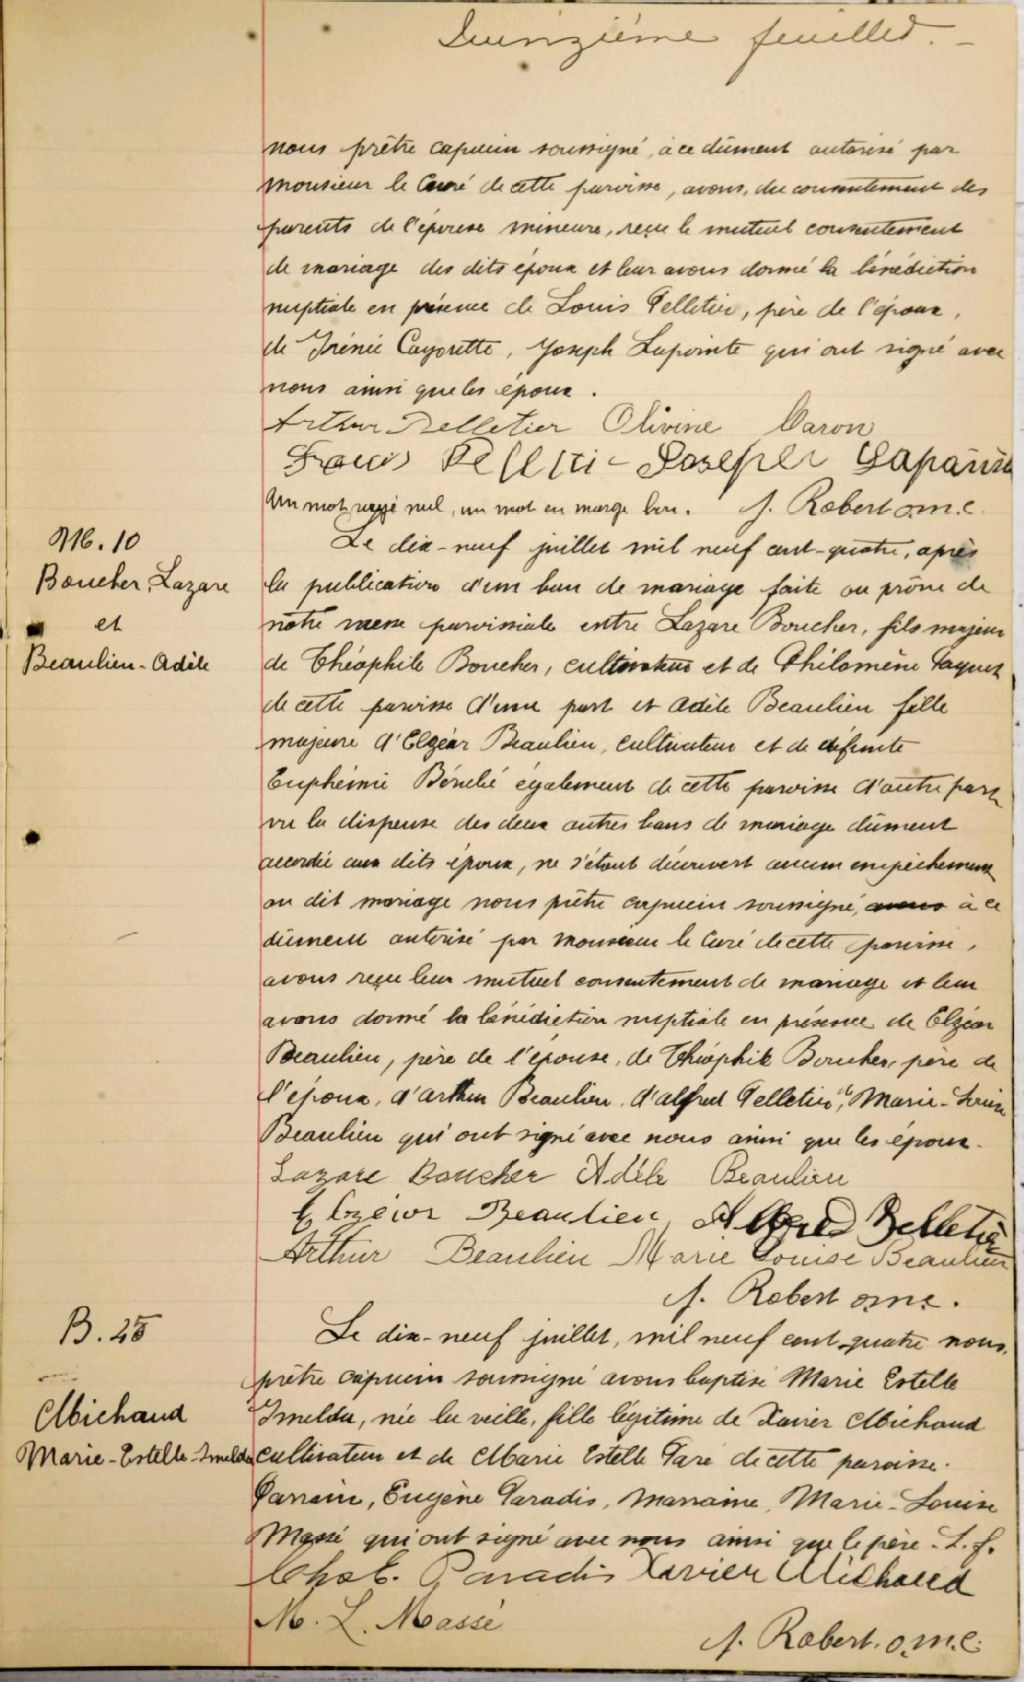 feuillet. -
nous prêtre capucin soussigné, à ce dûment autorisé par
monsieur le Curé de cette paroisse, avons, du consentement des
parents de l'épouse mineure, reçu le mutuel consentement
de mariage des dits époux et leur avons donné la bénédiction
nuptiale en présence de Louis Pelletier, père de l'époux,
de Irénée Cayouette, Joseph Lapointe qui ont signé avec
nous ainsi que les époux.
Arthur Pelletier Olivine Caron
Louis Joseph
Un mot rayé nul, un mot en marge bon. J. Robert o.m.c.
M. 10
Boucher, Lazare
et
Beaulieu - Adèle
Le dix-neuf juillet mil neuf cent-quatre, après
la publication d'un ban de mariage faite au prône de
notre messe paroissiale entre Lazare Boucher, fils majeur
de Théophile Boucher, cultivateur et de Philomène Paquet
de cette paroisse d'une part et Adèle Beaulieu fille
majeure d'Elzéar Beaulieu, cultivateur et de défunte
Euphémie Bérubé également de cette paroisse d'autre part
vu la dispense des deux autres bans de mariage dûment
accordée aux dits époux, ne s'étant découvert aucun empêchement
au dit mariage nous prêtre capucin soussigné, à ce
dûment autorisé par monsieur le Curé de cette paroisse,
avons reçu leur mutuel consentement de mariage et leur
avons donné la bénédiction nuptiale en présence de Elzéar
Beaulieu, père de l'épouse, de Théophile Boucher, père de
l'époux, d'Arthur Beaulieu, d'Alfred Pelletier, de Marie-Louise
Beaulieu qui ont signé avec nous ainsi que les époux.
Lazare Boucher Adèle Beaulieu
Elzéar Beaulieu Alfred Pelletier
Arthur Beaulieu Marie Louise Beaulieu
J. Robert o.m.c.
B. 25
Michaud
Marie-Estelle-Imelda
Le dix-neuf juillet, mil neuf cent-quatre nous,
prêtre capucin soussigné avons baptisé Marie Estelle
Imelda, née la veille, fille légitime de Xavier Michaud
cultivateur et de Marie Estelle Paré de cette paroisse.
Parrain, Eugène Paradis, marraine, Marie-Louise
Massé qui ont signé avec nous ainsi que le père. L. f.
Chs E. Paradis Xavier Michaud
M. L. Massé
J. Robert. o.m.c.